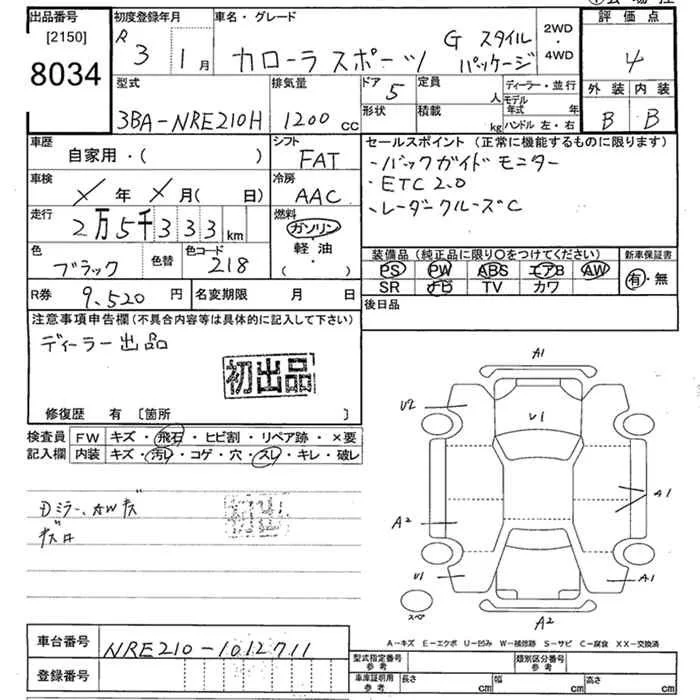 出品番号 初度登録年月 車名・グレード 2WD・4WD 評価点
[2150] R 3 1月 カローラスポーツ G スタイルパッケージ 4
8034
型式 排気量 ドア 5 定員 人 ディーラー・並行 外装 内装
3BA-NRE210H 1200 cc 形状 積載 kg モデル年式 年 ハンドル 左・右 B B
車歴 シフト セールスポイント (正常に機能するものに限ります)
自家用・( ) FAT ・バックガイドモニター
車検 冷房 ・ETC2.0
X年 X月( 日) AAC ・レーダークルーズC
走行 燃料
2万5千333km ガソリン
色 色替 色コード 軽・油 装備品 (純正品に限り○をつけてください) 新車保証書
ブラック 218 ・( ) PS PW ABS エアB AW 有・無
SR ナビ TV カワ
R券 9,520円 名変期限 月 日 後日品
注意事項申告欄 (不具合内容等は具体的に記入して下さい)
ディーラー出品
初出品
修復歴 有 [箇所 ]
検査員 FW キズ・飛石・ヒビ割・リペア跡・×要
記入欄 内装 キズ・汚れ・コゲ・穴・スレ・キレ・破レ
ミラー、AWキズ
A1
U2
U1
A2
A1
U1
A1
スペ
A2
A-キズ E-エクボ U-凹み W-補修跡 S-サビ C-腐食 XX-交換済
車台番号 NRE210-1012711
登録番号
型式指定番号 参考 類別区分番号 参考
車庫証明用 参考 長さ cm 幅 cm 高さ cm